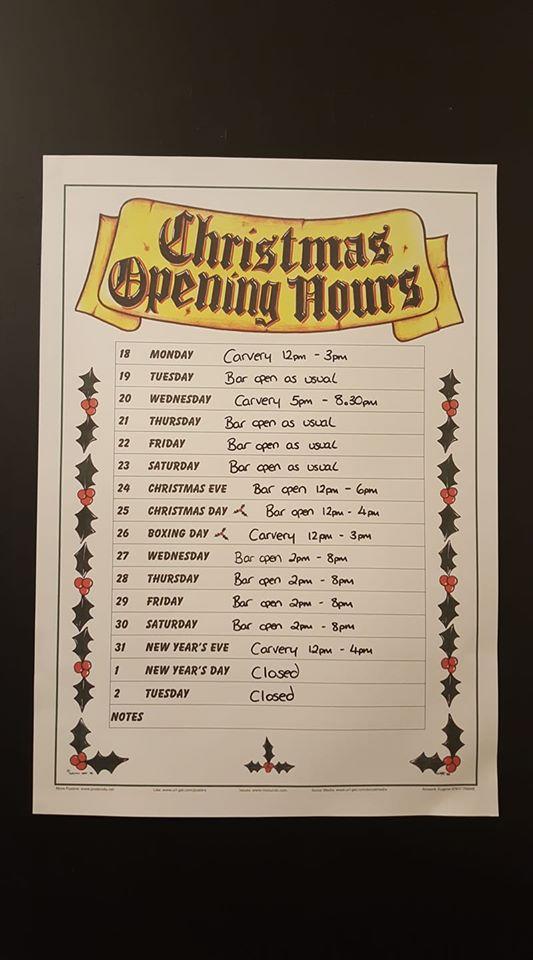 Christmas
Opening Hours
18 MONDAY Carvery 12pm - 3pm
19 TUESDAY Bar open as usual
20 WEDNESDAY Carvery 5pm - 8.30pm
21 THURSDAY Bar open as usual
22 FRIDAY Bar open as usual
23 SATURDAY Bar open as usual
24 CHRISTMAS EVE Bar open 12pm - 6pm
25 CHRISTMAS DAY Bar open 12pm - 4pm
26 BOXING DAY Carvery 12pm - 3pm
27 WEDNESDAY Bar open 2pm - 8pm
28 THURSDAY Bar open 2pm - 8pm
29 FRIDAY Bar open 2pm - 8pm
30 SATURDAY Bar open 2pm - 8pm
31 NEW YEAR'S EVE Carvery 12pm - 4pm
1 NEW YEAR'S DAY Closed
2 TUESDAY Closed
NOTES